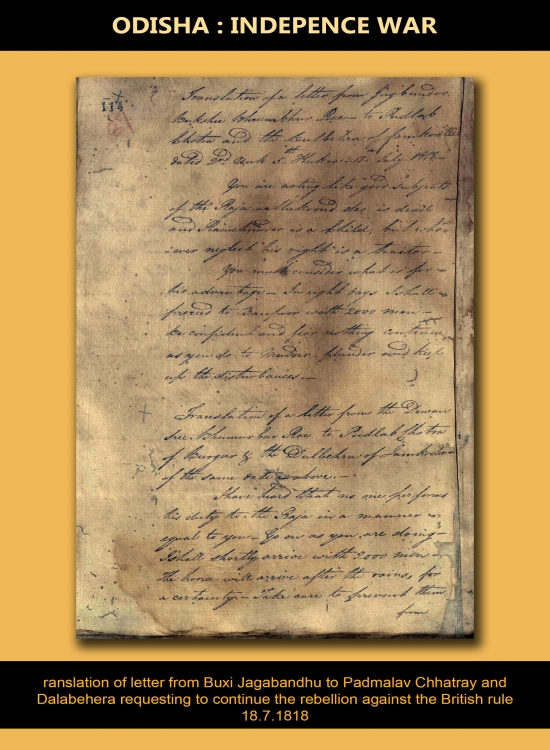 ODISHA : INDEPENCE WAR
114
Translation of a letter from Jugbundoo
to Pudlab
Chotra and the Dulbehra of
dated 2d Unk 5th 18th July 1818 –
You are acting like good subjects
of the Raja – Mukoond deo is dead
and Ramchunder is a Child, but who
ever neglects his right is a traitor –
You must consider what is for
his advantage – In eight days I shall
proceed to with 2000 men –
be confident and fear nothing continue
as you do to Murder, plunder and keep
up the disturbances –
Translation of a letter from the Dewan
Rae to Pudlab Chotra
of & the Dulbehra of
of the same date as above. –
I have heard that no one performs
his duty to the Raja in a manner
equal to you – Go on as you are doing –
I shall shortly arrive with 2000 men –
the will arrive after the rains, for
a certainty – Take care to prevent them
from
ranslation of letter from Buxi Jagabandhu to Padmalav Chhatray and
Dalabehera requesting to continue the rebellion against the British rule
18.7.1818